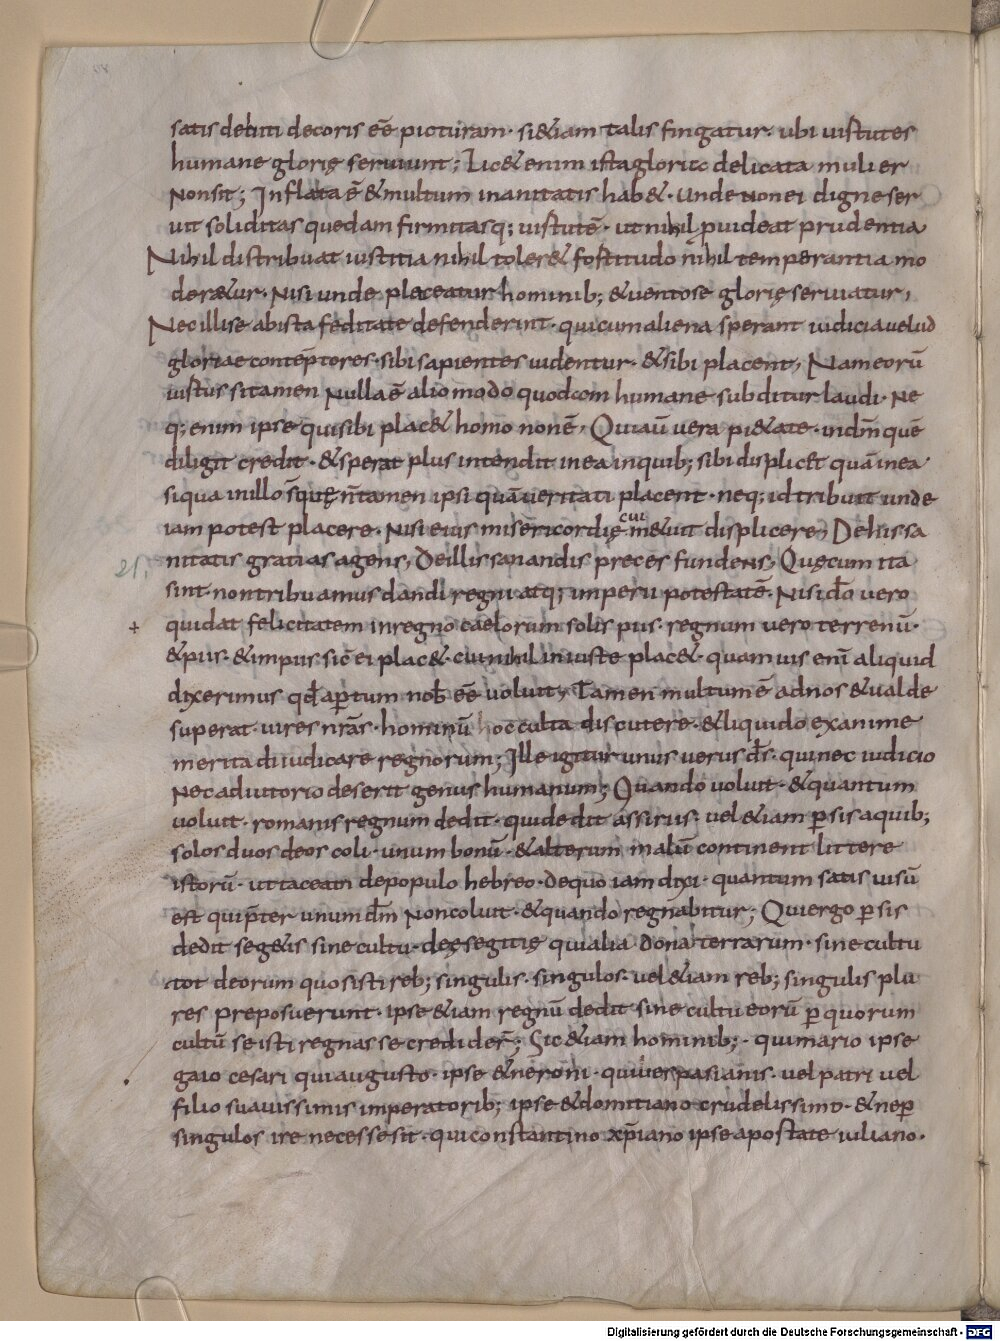 satis debiti decoris eē picturam· si &iam talis fingatur· ubi uirtutes
humane glorię seruiunt; Lic& enim ista gloria delicata mulier
Non sit; Inflata ē & multum inanitatis hab&· unde non ei digne ser
uit soliditas quedam firmitasq; uirtutē· ut nihil ꝓuideat prudentia
Nihil distribuat iustitia nihil toler& fortitudo nihil temperantia mo
der&ur· Nisi unde placeatur hominib; & uentose glorię seruiatur,
Nec illi se ab ista feditate defenderint· qui cum aliena spernant iudicia uelud
gloriae contēptores· sibi sapientes uidentur· & sibi placent, Nam eorū
uirtus si tamen Nulla ē alio modo quodam humane subditur laudi· Ne
q; enim ipse qui sibi plac& homo non ē, Qui aū uera pi&ate· in dm̄ quē
diligit credit· & sperat plus intendit in ea in quib; sibi displic& quā in ea
siqua in illo s̄ quę n̄ tamen ipsi quā ueritati placent· neq; id tribuit unde
iam potest placere· Nisi eius misericordię cui m&uit displicere, De his sa
nitatis gratias agens, De illis sanandis preces fundens, Quę cum ita
21,
sint· non tribuamus dandi regni atq; imperii potestatē· Nisi dō uero
+ qui dat felicitatem in regno caelorum solis piis· regnum uero terrenū·
& piis· & impiis· sic ei plac&· cui nihil iniuste plac&· quam uis enī aliquid
dixerimus qd̄ aꝑtum nob̄ eē uoluit, Tamen multum ē ad nos & ualde
superat· uires nrās· hominū hocculta discutere· & liquido examine
merita diiudicare regnorum; Ille igitur unus uerus ds̄· qui nec iudicio
Nec adiutorio deserit genus humanum; Quando uoluit· & quantum
uoluit· romanis regnum dedit· qui dedit assiriis· uel &iam ꝑsis a quib;
solos duos deos coli· unum bonū· & alterum malū continent littere
istorū· ut taceam de populo hebreo· de quo iam dixi· quantum satis uisū
est qui p̄ter unum dm̄ Non coluit· & quando regnabitur; Qui ergo ꝑsis
dedit seg&is sine cultu· deę segitię qui alia dona terrarum· sine cultu
tot deorum quos isti reb; singulis· singulos· uel &iam reb; singulis plu
res preposuerunt· ipse &iam regnū dedit· sine cultu eorū ꝑ quorum
cultū se isti regnasse credider̄; Sic &iam hominib;· qui mario ipse
gaio cesari qui augusto· ipse & neroni· qui uespasianis· uel patri uel
filio suauissimis imperatorib; ipse & domitiano crudelissimo· & ne ꝑ
singulos ire necesse sit· qui constantino xp̄iano ipse apostate iuliano·
Digitalisierung gefördert durch die Deutsche Forschungsgemeinschaft - DFG